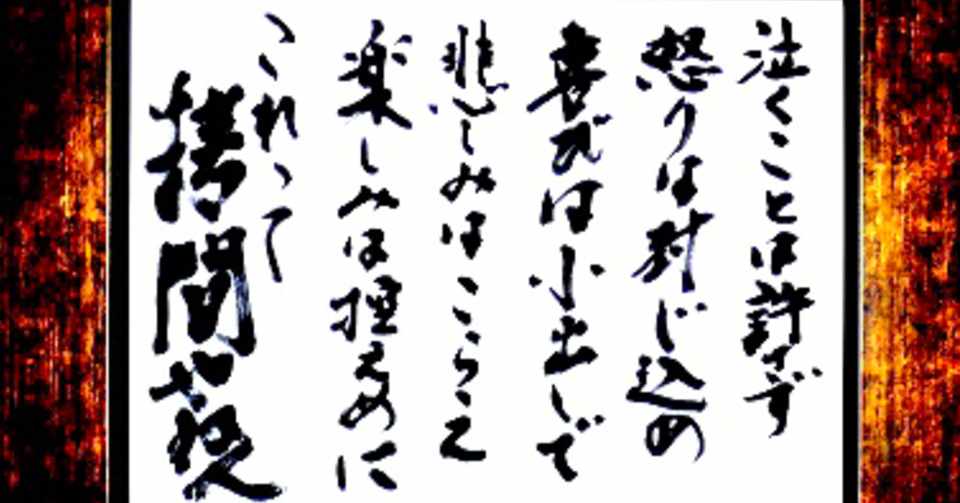 泣くことは許さず
怒りは封じ込め
喜びは小出しで
悲しみはこらえ
楽しみは控えめに
これって
拷問やねん